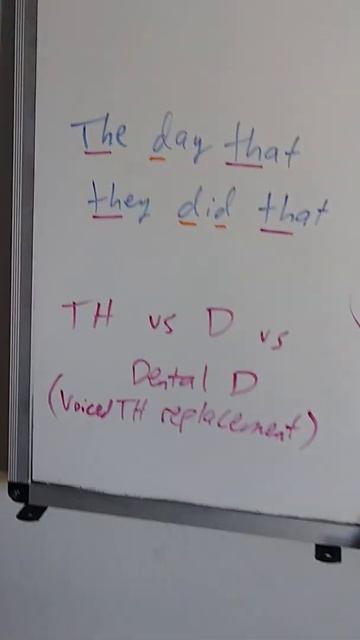 The day that
they did that
TH vs D vs
Dental D
(Voiced TH replacement)